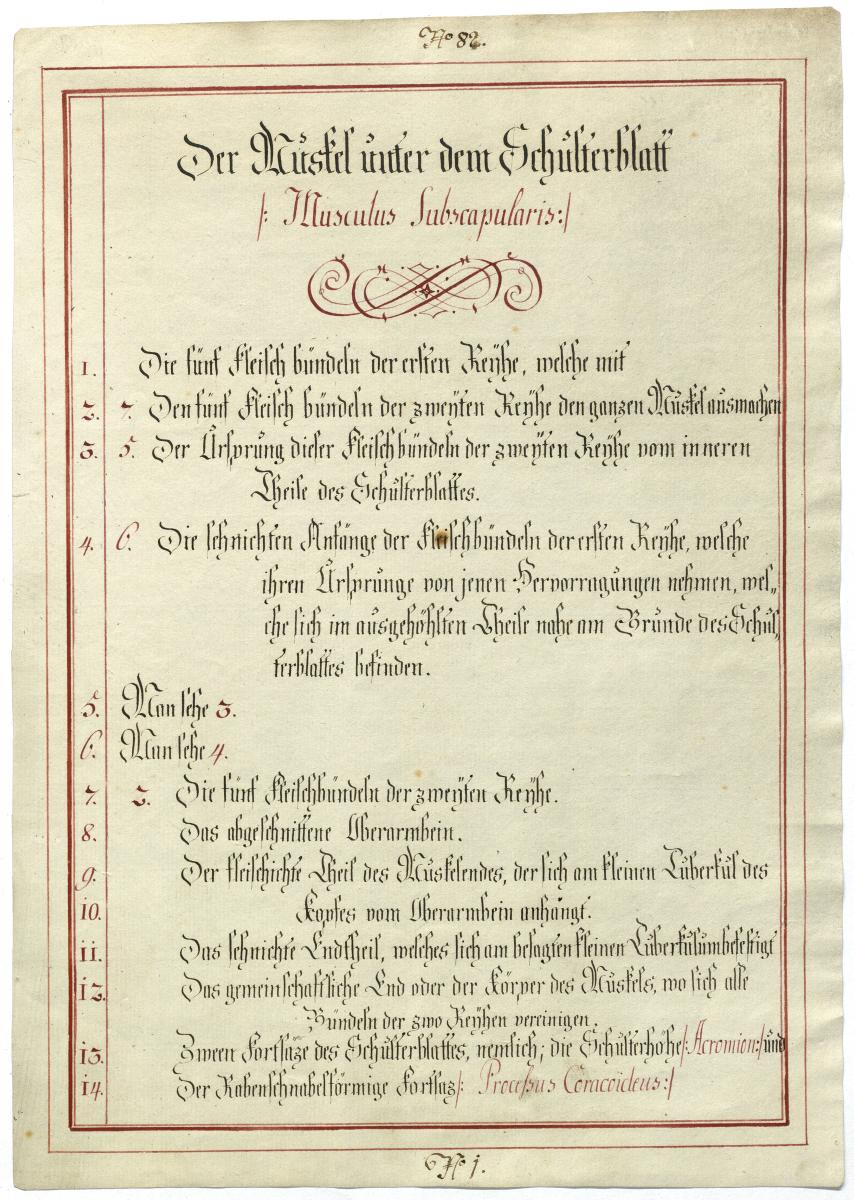 No 82.
Der Muskel unter dem Schulterblatt
/: Musculus Subscapularis:/
1. Die fünf Fleisch bündeln der ersten Reyhe, welche mit
2. 7. Den fünf Fleisch bündeln der zweyten Reyhe den ganzen Muskel ausmachen
3. 5. Der Ursprung dieser Fleischbündeln der zweyten Reyhe vom inneren
Theile des Schulterblattes.
4. 6. Die sehnichten Anfänge der Fleischbündeln der ersten Reyhe, welche
ihren Ursprunge von jenen Hervorragungen nehmen, wel„
che sich im ausgehöhlten Theile nahe am Grunde des Schul„
terblattes befinden.
5. Man sehe 3.
6. Man sehe 4.
7. 2. Die fünf Fleischbündeln der zweyten Reyhe.
8. Das abgeschnittene Oberarmbein.
9. Der fleischichte Theil des Muskelendes, der sich am kleinen Tuberkul des
10. Kopfes vom Oberarmbein anhängt.
11. Das sehnichte Endtheil, welches sich am besagten kleinen Tuberkulum befestigt
12. Das gemeinschaftliche End oder der Körper des Muskels, wo sich alle
Bündeln der zwo Reyhen vereinigen.
13. Zween Fortsäze des Schulterblattes, nemlich; die Schulterhöhe /: Acromion:/ und
14. Der Rabenschnabelförmige Fortsaz /: Processus Coracoideus:/
No 1.